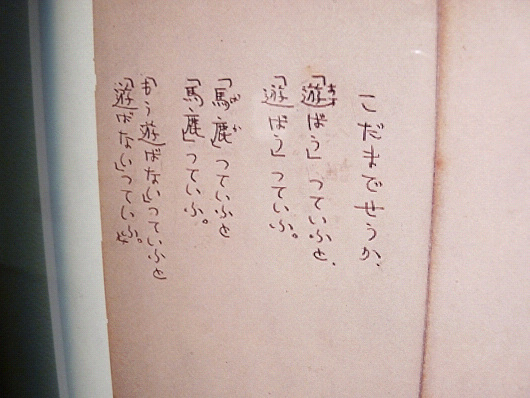 こだまでせうか、
「遊ばう」っていふと、
「遊ばう」っていふ。
「馬鹿」っていふと
「馬鹿」っていふ。
「もう遊ばない」っていふと
「遊ばない」っていふ。